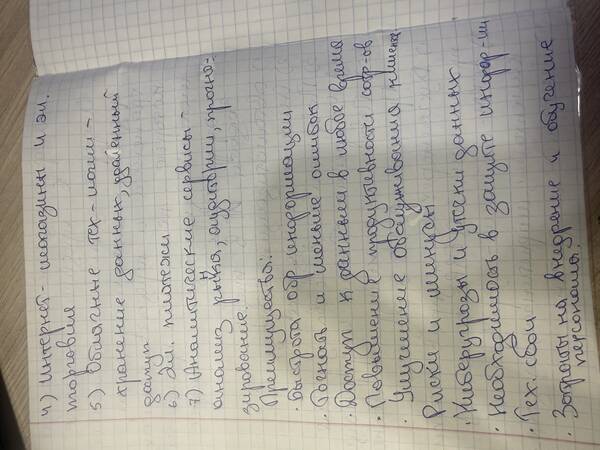 4) Интернет-магазины и эл.
торговля
5) Облачные тех-логии -
хранение данных, удаленный
доступ
6) Эл. платежи
7) Аналитические сервисы -
анализ рынка, аудитории, прогно-
зирование.
Преимущества:
· быстрота обр. информации
· Точность и меньше ошибок
· Доступ к данным в любое время
· Повышение продуктивности сотр-ов
· Улучшение обслуживания клиента.
Риски и минусы
· Киберугрозы и утечки данных
· Необходимость в защите информ-ии
· Тех. сбои
· Затраты на внедрение и обучение
персонала.